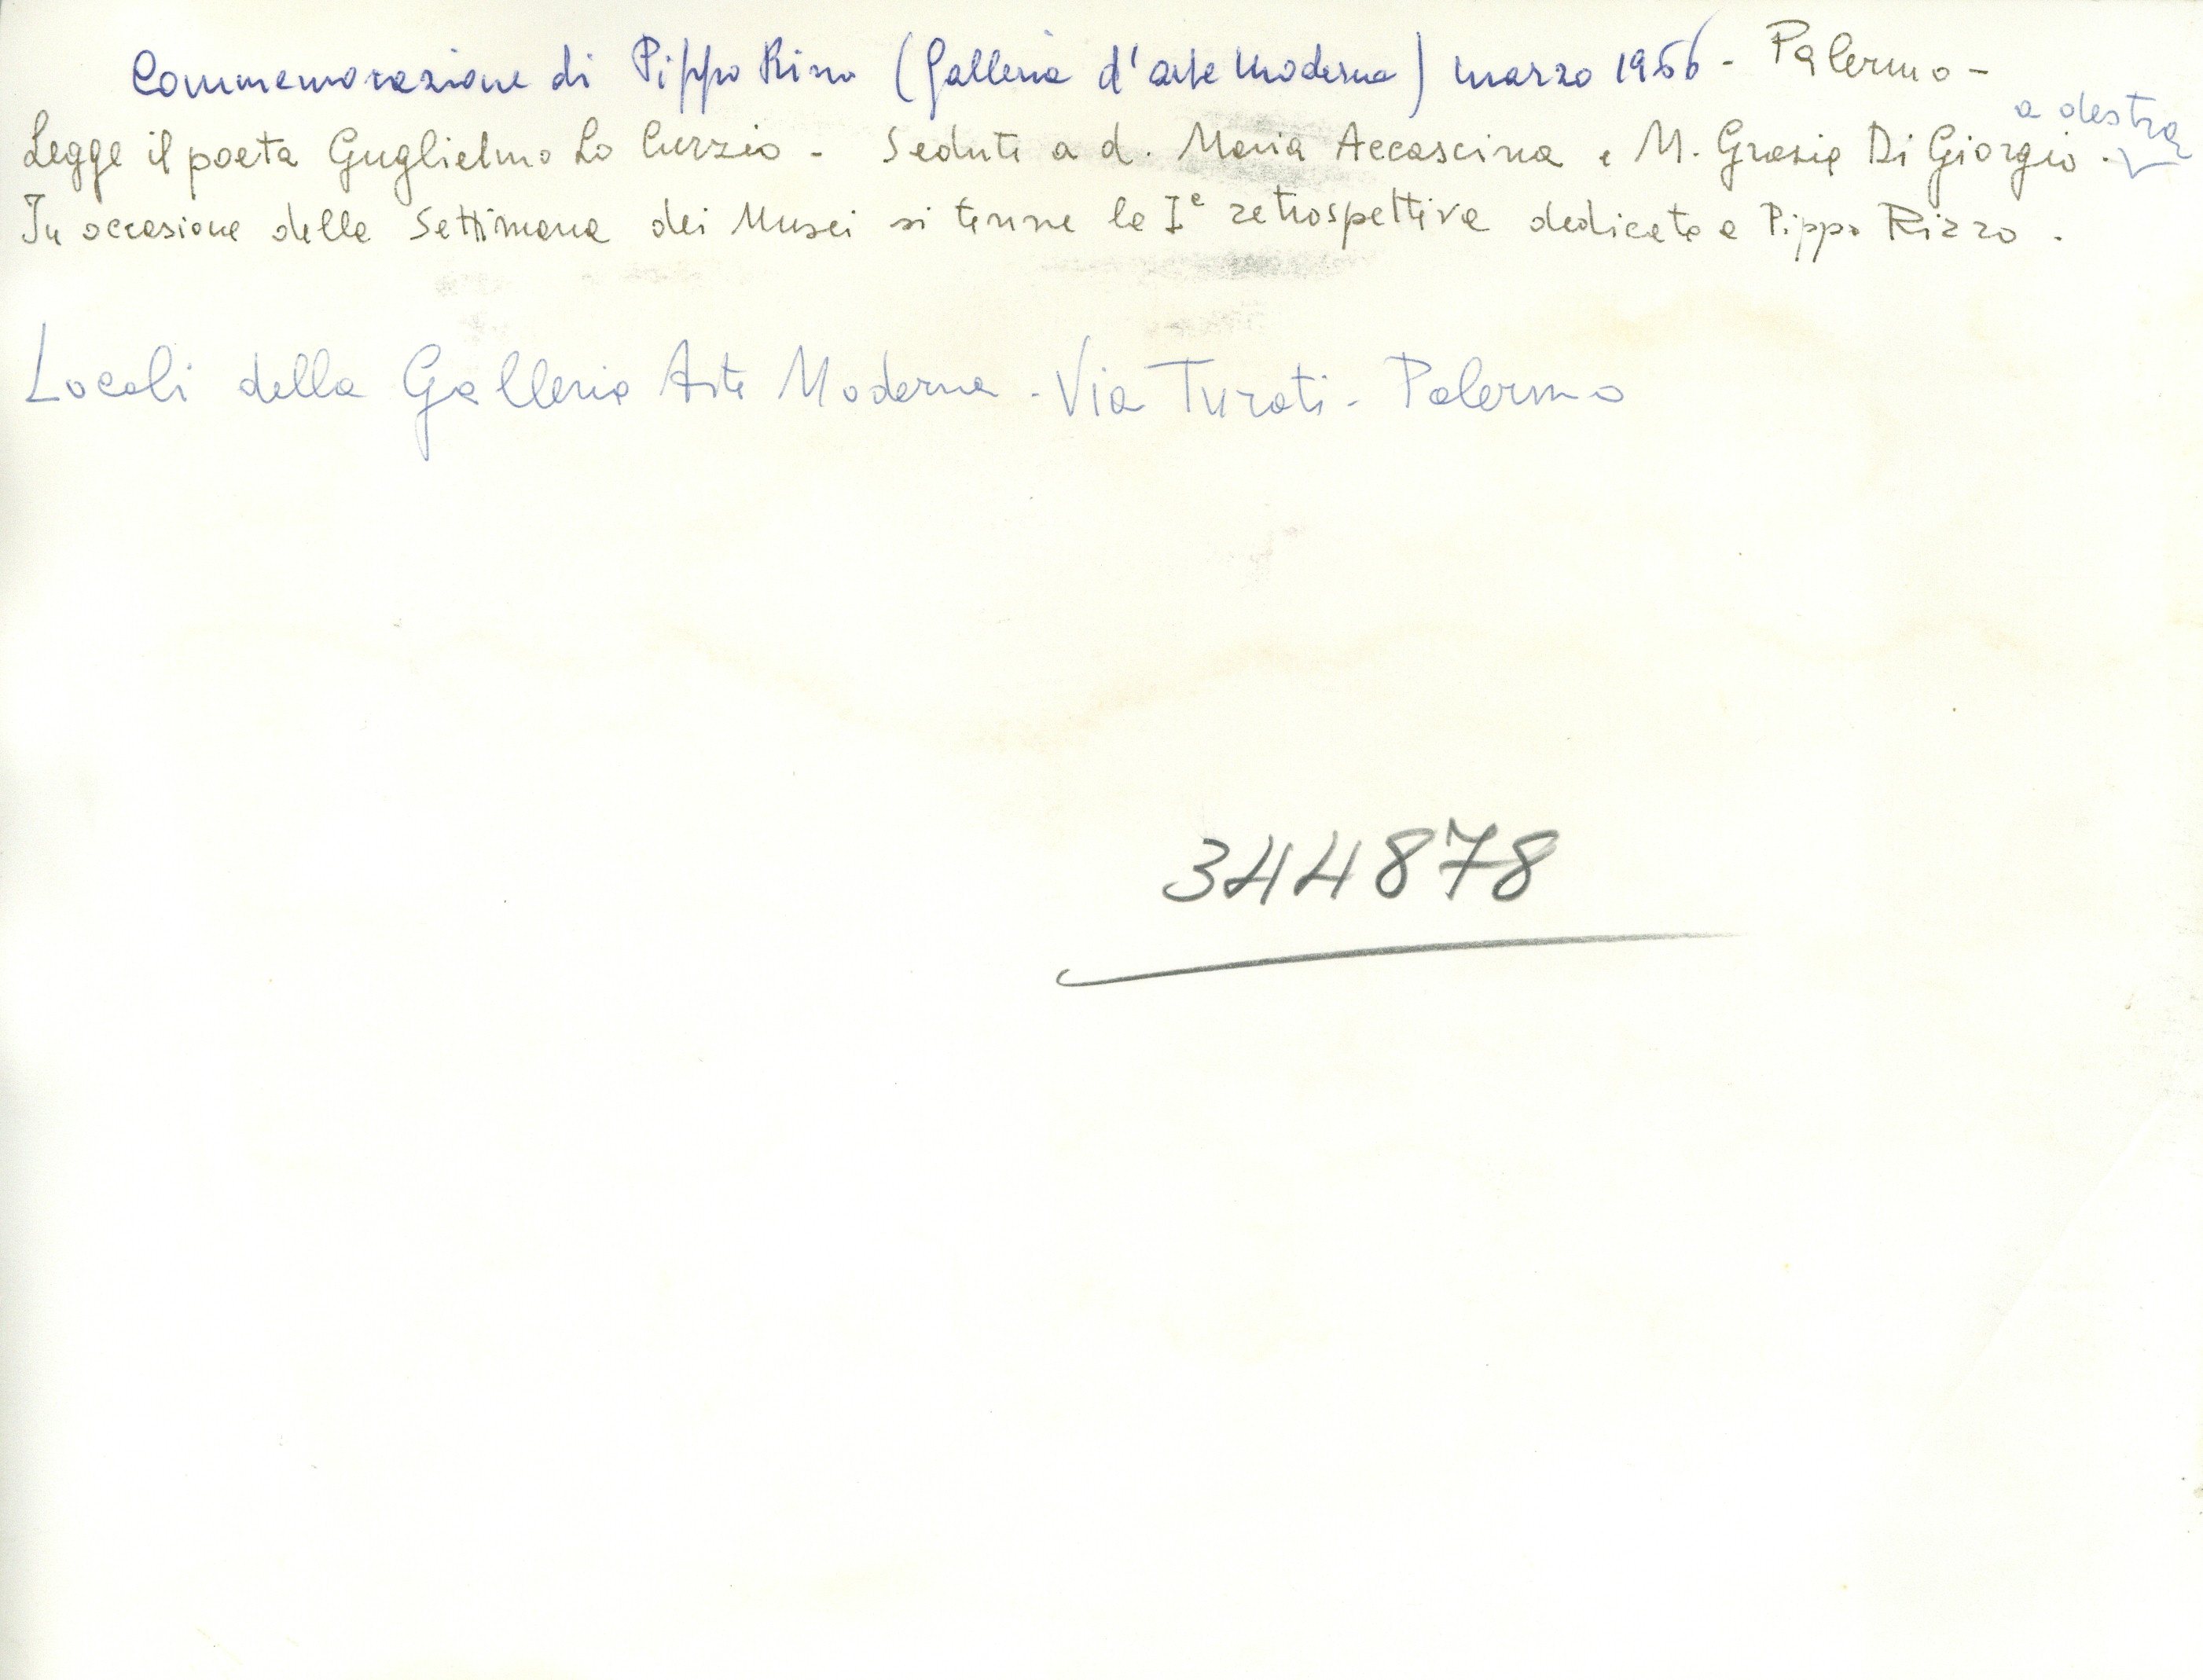 Commemorazione di Pippo Rizzo (Galleria d'arte Moderna) marzo 1966 - Palermo -
a destra
Legge il poeta Guglielmo Lo Curzio - Seduti a d. Maria Accascina e M. Grazia Di Giorgio.
In occasione della Settimana dei Musei si tenne la Iª retrospettiva dedicata a Pippo Rizzo.
Locali della Galleria Arte Moderna - Via Turati - Palermo
344878